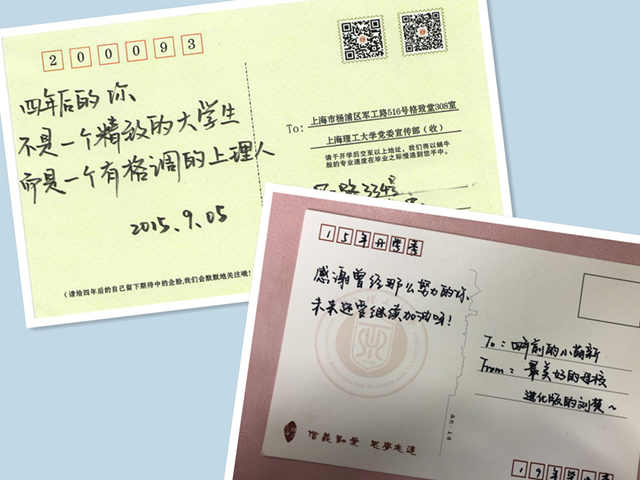 200093
四年后的你、
不是一个精致的大学生
而是一个有格调的上理人
2015.9.05
(请给四年后的自己留下期待中的企盼,我们会默默地关注哦!
To:
上海市杨浦区军工路516号格致堂308室
上海理工大学党委宣传部(收)
请于开学后交至以上地址,我们将以蜗牛
般的专业速度在毕业之际慢递到您手中。
15年开学季
感谢曾经那么努力的你、
未来还要继续加油呀!
To:四年前的小萌新
From:最美好的母校
进化版的刘
信义勤爱 思学志远
19年